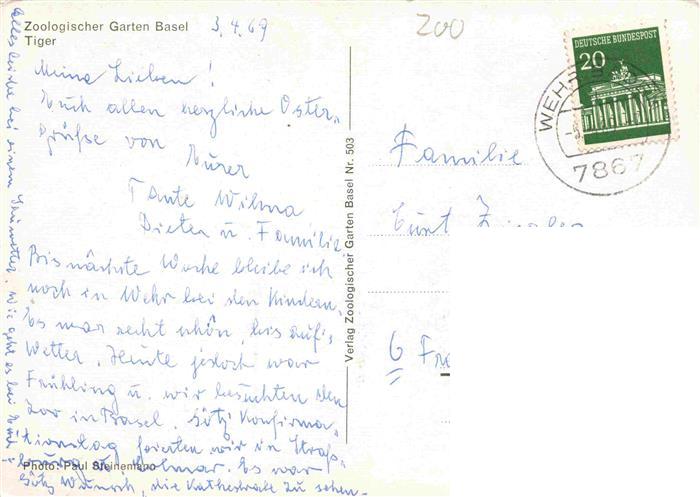 Zoologischer Garten Basel
Tiger
3.4.69
Meine Lieben!
Euch allen herzliche Oster-
Grüße von
Eurer
Tante Wilma
Dieter u. Familie
Bis nächste Woche bleibe ich
noch in Wehr bei den Kindern.
Es war recht schön, bis auf's
Wetter. Heute jedoch war
Frühling u. wir besuchten den
Zoo in Basel. Götz' Konfirma-
tionstag feierten wir in Straß-
burg u. Colmar. Es war
Götz Wunsch, die Kathedrale zu sehen.
Photo: Paul Steinemann
Alles bei einem Wie geht es bei Euch?
Verlag Zoologischer Garten Basel Nr. 503
ZOO
DEUTSCHE BUNDESPOST
20
WEHR
7867
Familie
6 Fr